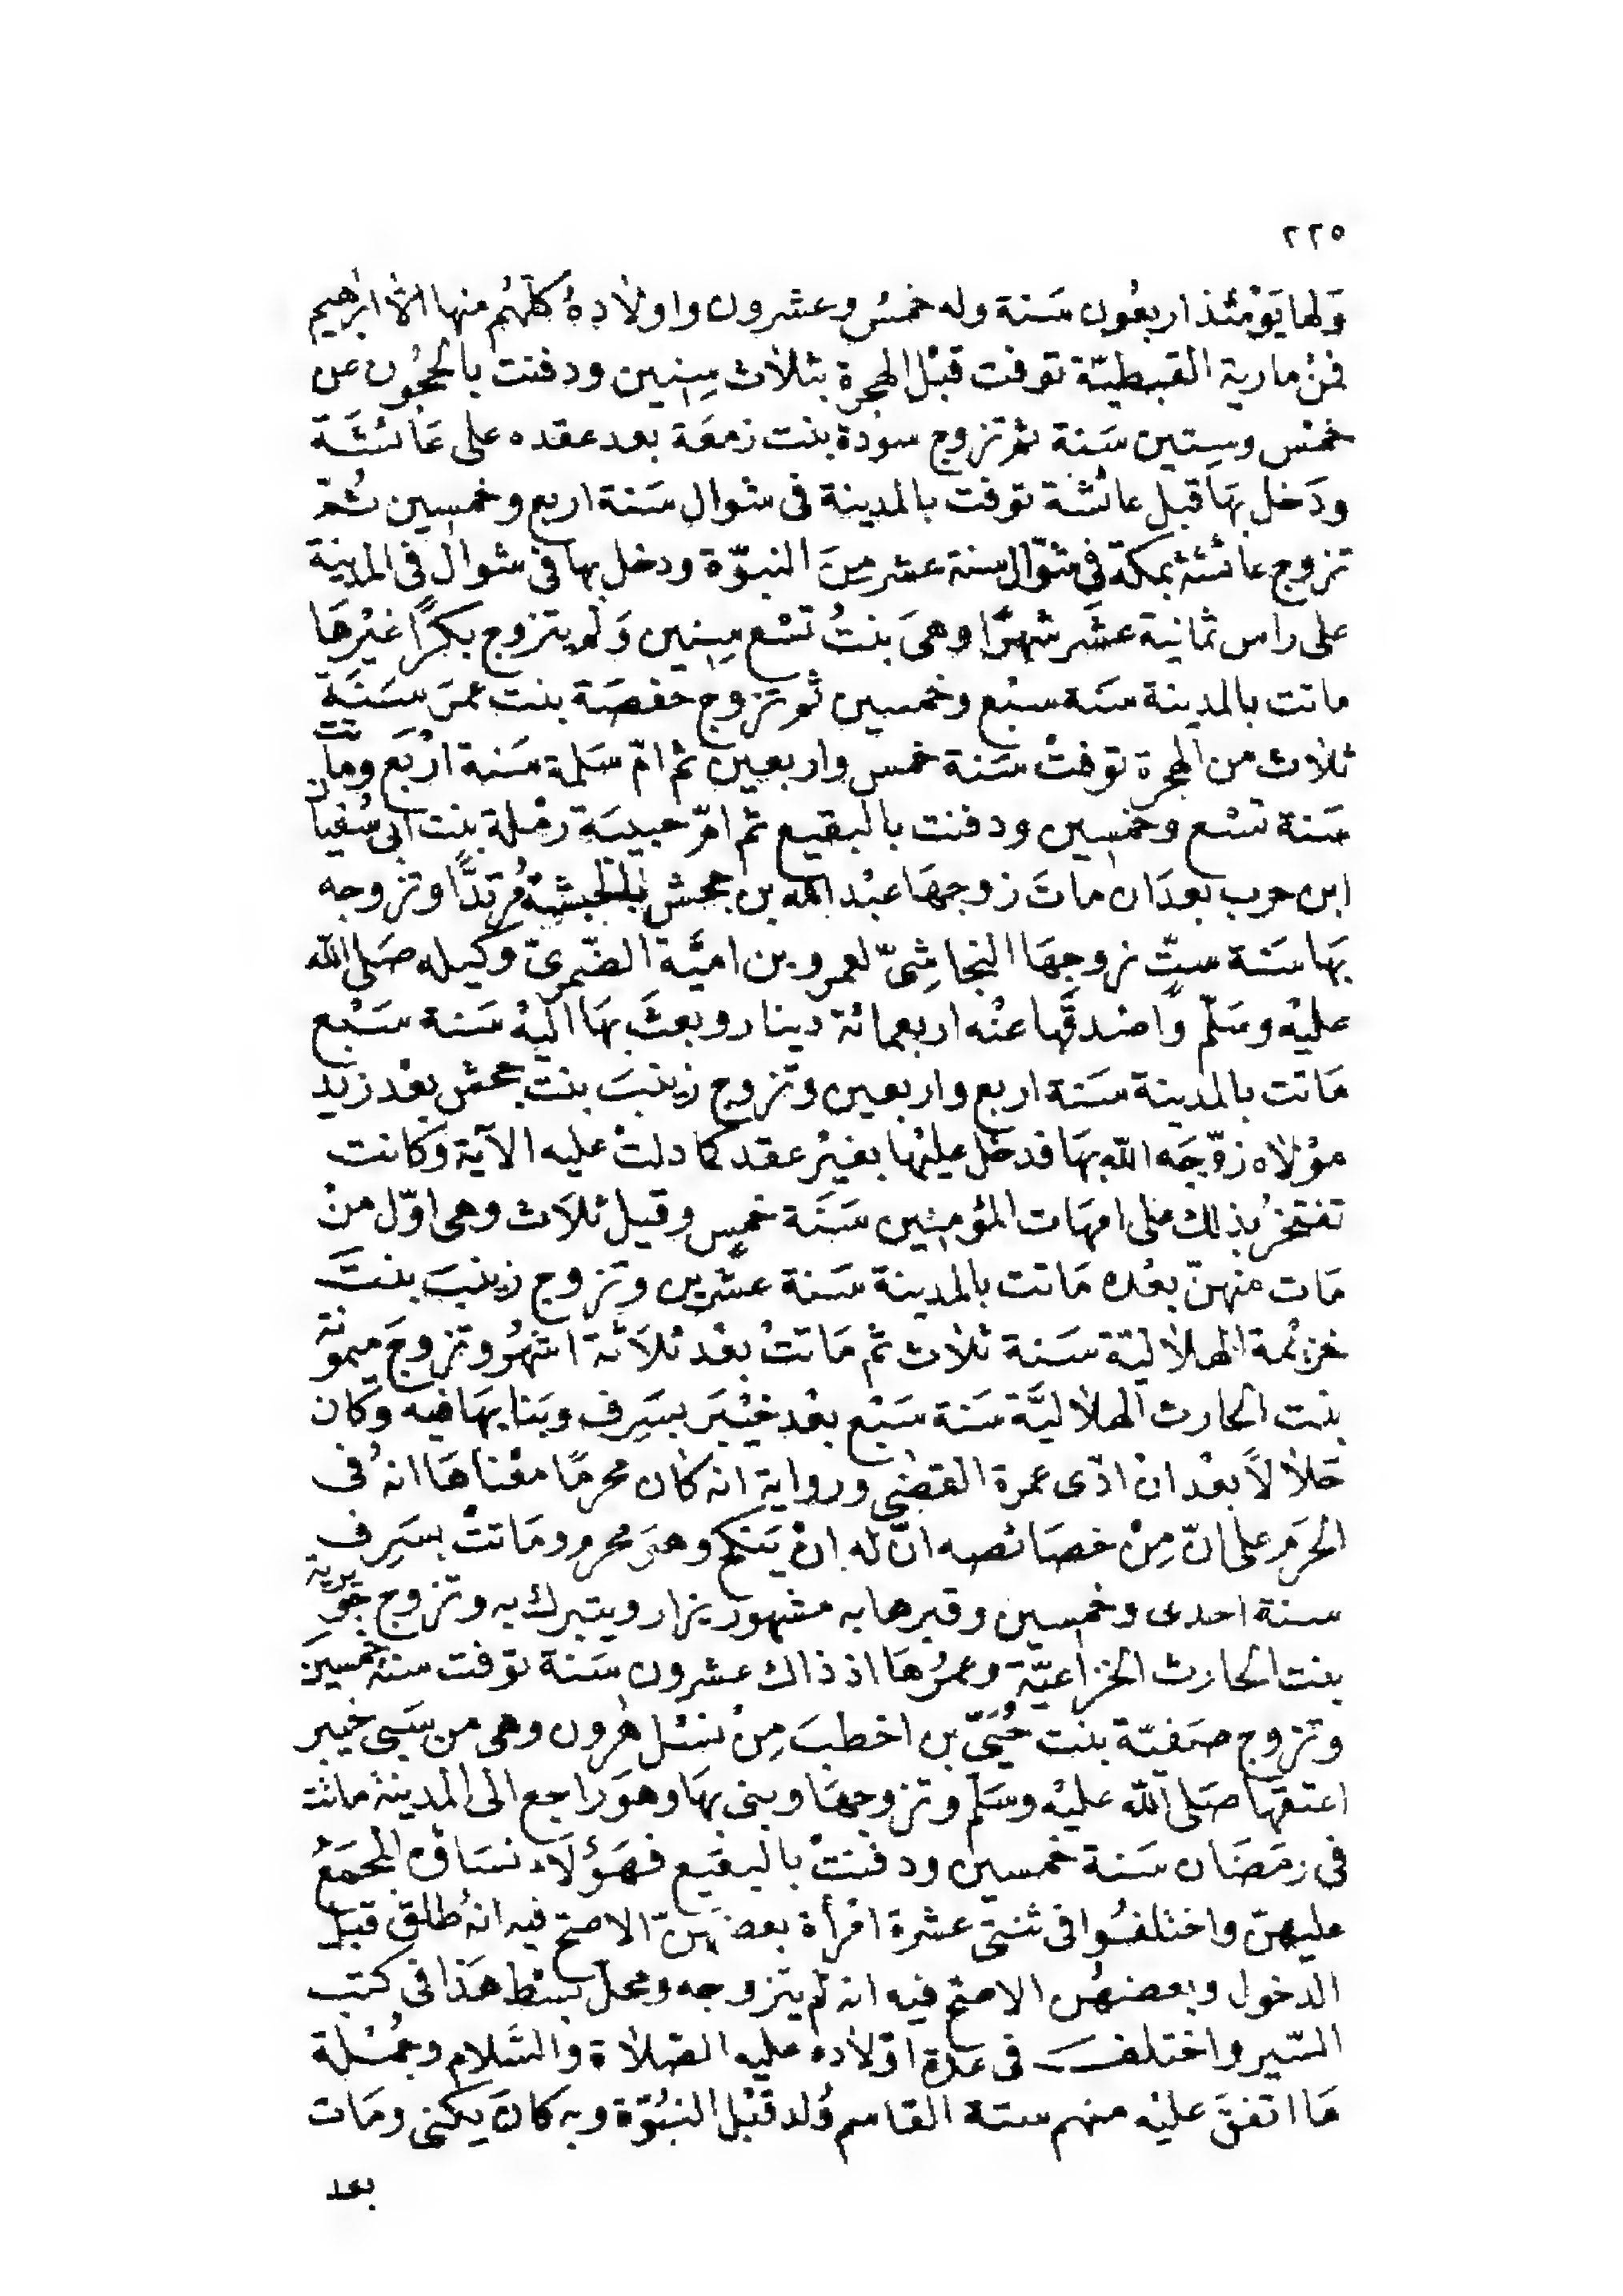 ٢٢٥
وَلها يَوْمئذ اربعُون سَنة وله خمسُ وعشرون واولادهُ كلّهُم منها الّا ابرٰهيم
فمنْ مارية القبطيّة توفت قبْل الهجرة بثلاث سِنِين ودفنت بالحجُون عن
خمس وسِتين سَنة ثم تزوج سودة بنت زمعَة بعد عقده على عَائشَة
ودَخل بهَا قبل عائشة توفت بالمدينة فى شوال سَنة اربع وخمسِين ثُمّ
تزوج عائشة بمكة فى شوّال سنة عشر مِنَ النبوّة ودخل بها فى شوال فى المدينة
على راس ثمانية عشَر شهرًا وهىَ بنتُ تسْع سِنِين وَلم يتزوج بكرًا غيْرهَا
ماتت بالمدينة سَنة سبْع وخمسين ثم تزوج حفصَة بنت عمَر سَنَة
ثلاث من الهجرة توفتْ سَنة خمس واربعين ثم امّ سَلمة سَنة ارْبَع وماتت
سَنة تسْع وخمسِين ودفنت بالبقيع ثم امّ حبيبَة رمْلة بنت ابى سُفيان
ابن حرب بعدَ ان ماتَ زوجهَا عبْد الله بن جحش بالحبشة مُرتدًّا وتزوجه
بهَا سَنة ستّ زوجهَا النجاشِىّ لعمرو بن اميّة الضّمرىّ وكيله صَلى الله
عليْه وسَلّم وَاصْدقَها عنْه اربعمائة دينار وبعثَ بهَا اليْه سَنة سَبْع
مَاتت بالمدينة سَنة اربع واربعين وتزوج زينبَ بنت جحش بعْد زيد
موْلاه زوّجَه الله بهَا فدخل عليْها بغيْر عقد كما دلتْ عليه الآية وكانت
تفتخرُ بذلك على امهَات المؤمِنِين سَنَة خمسٍ وقيل ثلاث وهى اوّل منْ
مَات منْهنّ بعْده مَاتت بالمدينة سَنة عشرين وتزوج زينبَ بنتَ
خزيْمة الهلاليّة سَنة ثلاث ثم مَاتتْ بعْد ثلاَثة اشهُر وتزوجَ ميمونة
بنت الحارث الهلاليَّة سَنة سَبْع بعْد خيْبَر بسَرِف وبَنا بهَا فيه وكان
حَلالاً بعْد انْ ادّى عمرة القضٰى ورواية انه كان محرمًا معْناهَا انهُ فى
الحَرَم على انّ مِنْ خصَائصه انّ له انْ يَنكح وهوَ محرم ومَاتتْ بسَرِف
سنة احدى وخمسِين وقبرها به مشهور يزار ويتبرك به وتزوج جُويرية
بنت الحارث الخزاعيّة وعمرُهَا اذ ذاك عشرون سَنة توفت سنة خمسين
وتزوج صَفيّة بنت حُيَىّ بن اخطبَ مِنْ نسْل هٰرون وهى من سَبى خيبر
اعتقهَا صَلى الله عليْه وسَلّم وتزوجهَا وبنى بهَا وهوَ راجع الى المدينة ماتت
فى رمَضَان سَنة خمسين ودفنتْ بالبقيع فهَؤلَاء نسَاؤه المجمَعُ
عليهنّ واختلفُوا فى ثنتى عشرة امْرأة بعضهنّ الاصحّ فيه انهُ طلقَ قبْل
الدخول وبعضهُن الاصحّ فيه انه لم يتزوجه ومحلّ بسْط هَذا فى كتب
السّير واختلفَ فى عدة اوْلاده عليه الصّلاة والسَّلام وجُمْلة
مَا اتفقَ عليْه منهم ستة القاسم وُلد قبْل النبُوّة وبه كانَ يكنى ومَات
بعد